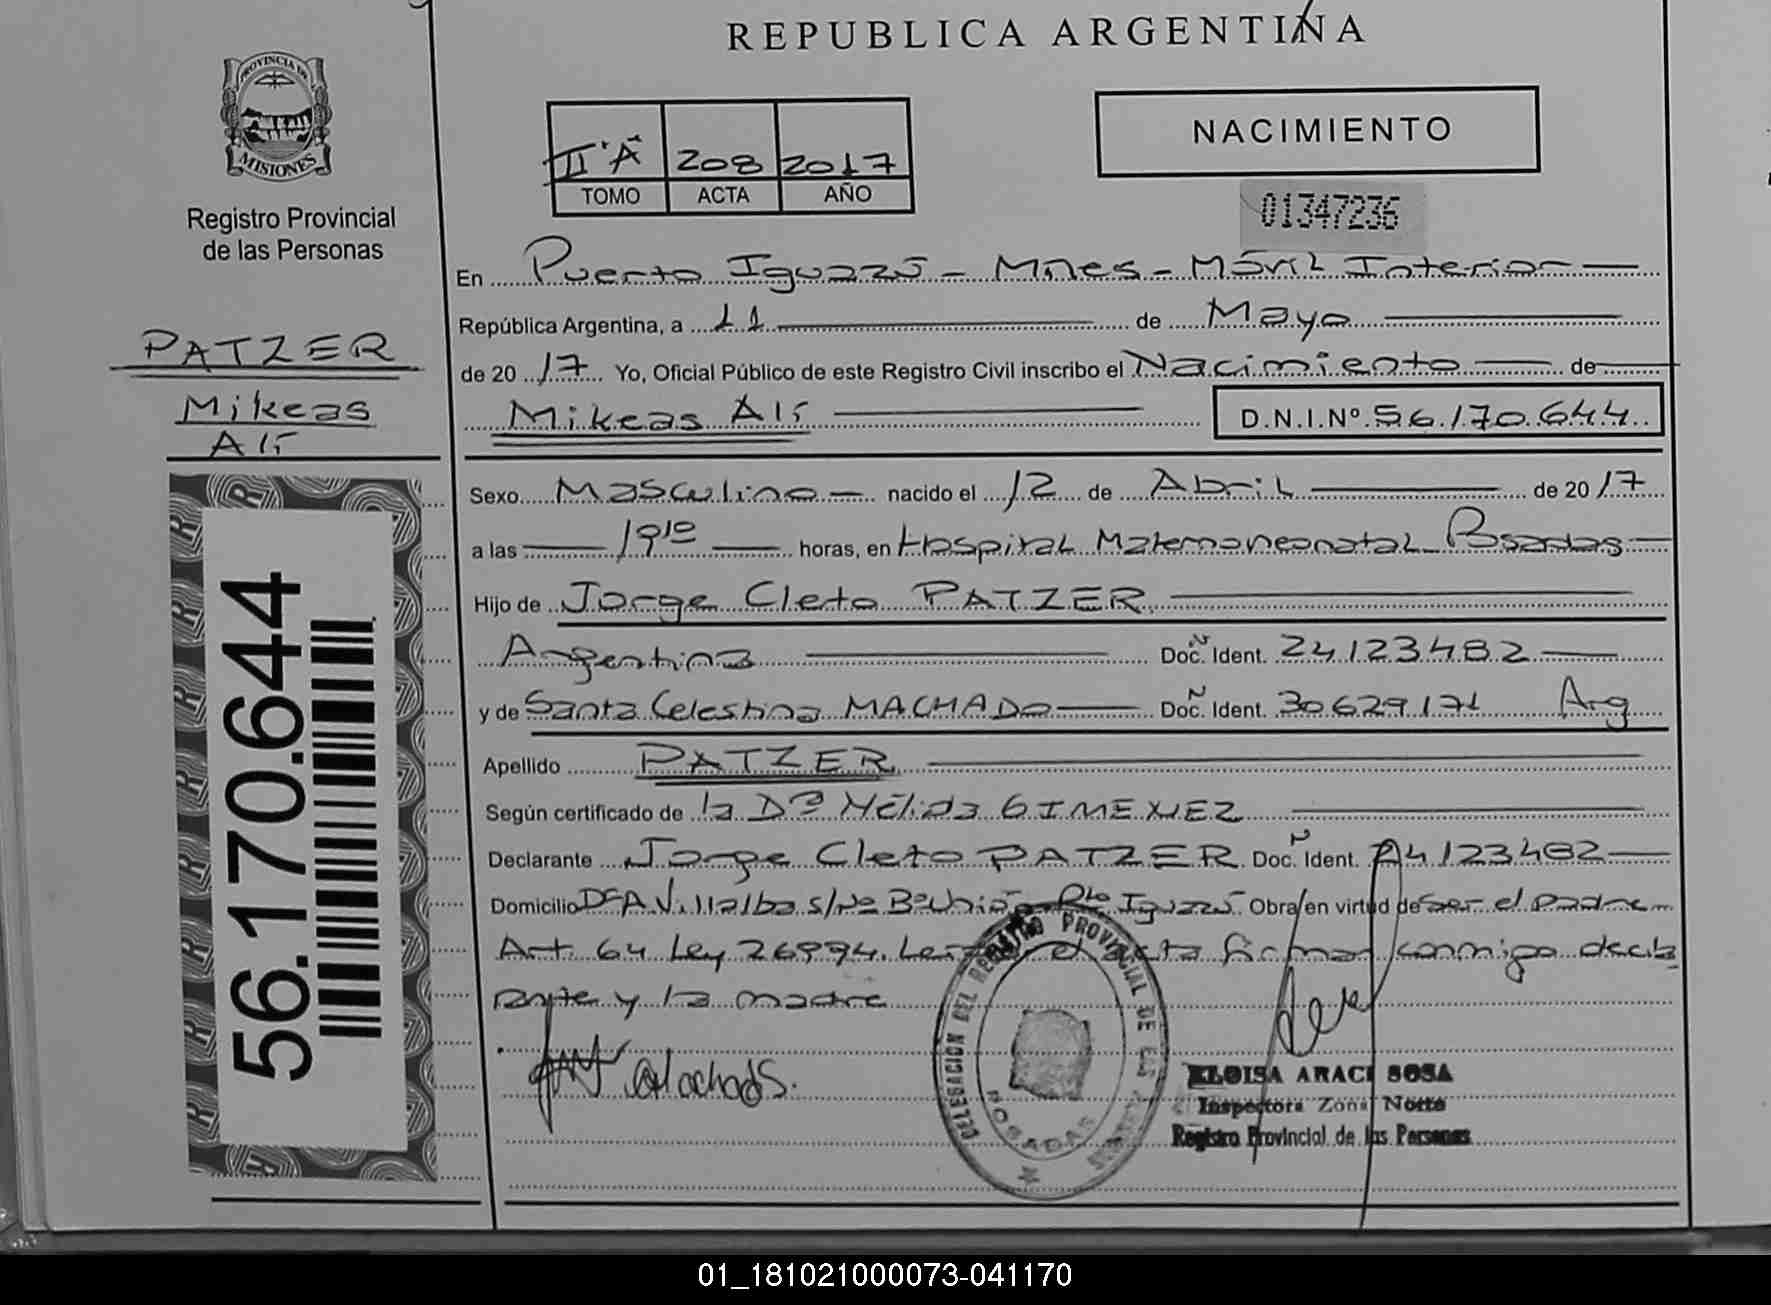 REPUBLICA ARGENTINA
PROVINCIA DE
MISIONES
Registro Provincial
de las Personas
II "A" 208 2017
TOMO ACTA AÑO
NACIMIENTO
01347236
PATZER
Mikeas
Alí
56.170.644
En Puerto Iguazú - Mnes - Móvil Interior
República Argentina, a 11 de Mayo
de 2017 Yo, Oficial Público de este Registro Civil inscribo el Nacimiento de
Mikeas Alí D.N.I.Nº 56.170.644
Sexo Masculino nacido el 12 de Abril de 2017
a las 19 10 horas, en Hospital Maternoneonatal Posadas
Hijo de Jorge Cleto PATZER
Argentina Doc. Ident. Nº 24.123.482
y de Santa Celestina MACHADO Doc. Ident. Nº 30.629.171 Arg
Apellido PATZER
Según certificado de la Dra Nélida GIMENEZ
Declarante Jorge Cleto PATZER Doc. Ident. Nº 24123482
Domicilio A. Villalba s/Nº Iguazú Obra en virtud de ser el padre
Art. 64 Ley 26994. firman conmigo decla
rante y la madre
Machado S.
DELEGACION DEL REGISTRO PROVINCIAL DE LAS PERSONAS
POSADAS
ELOISA ARACI SOSA
Inspectora Zona Norte
Registro Provincial de las Personas
01_181021000073-041170